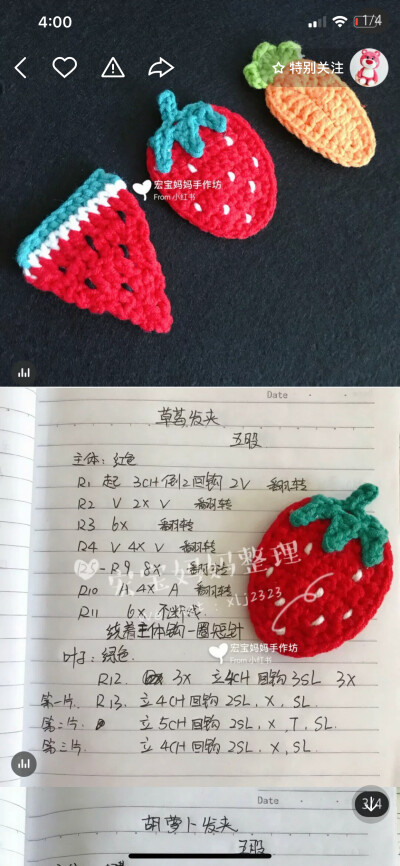 4:00
1/4
特别关注
宏宝妈妈手作坊
From 小红书
宏宝妈妈手作坊
From 小红书
Date
草莓发夹
五股
主体: 红色
R1 起 3CH 倒2回钩 2V 翻转
R2 V 2X V 翻转
R3 6X 翻转
R4 V 4X V 翻转
R5-R9 8X 翻转
R10 A 4X A 翻转
R11 6X 不断线
绕着主体钩一圈短针
宏宝妈妈整理
xlj2323
宏宝妈妈手作坊
From 小红书
叶子: 绿色.
R12 3X 立4CH回钩3SL 3X
第一片. R13. 立4CH回钩 2SL, X, SL
第二片 立5CH回钩 2SL, X, T, SL.
第三片 立4CH回钩 2SL, X, SL
Date
3/4
胡萝卜发夹
五股